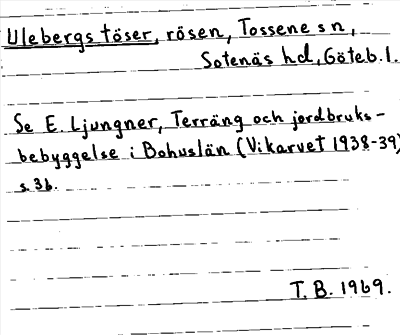 Ulebergs töser, rösen, Tossene sn,
Sotenäs hd, Göteb. l.
Se E. Ljungner, Terräng och jordbruks-
bebyggelse i Bohuslän (Vikarvet 1938-39)
s. 36.
T. B. 1969.